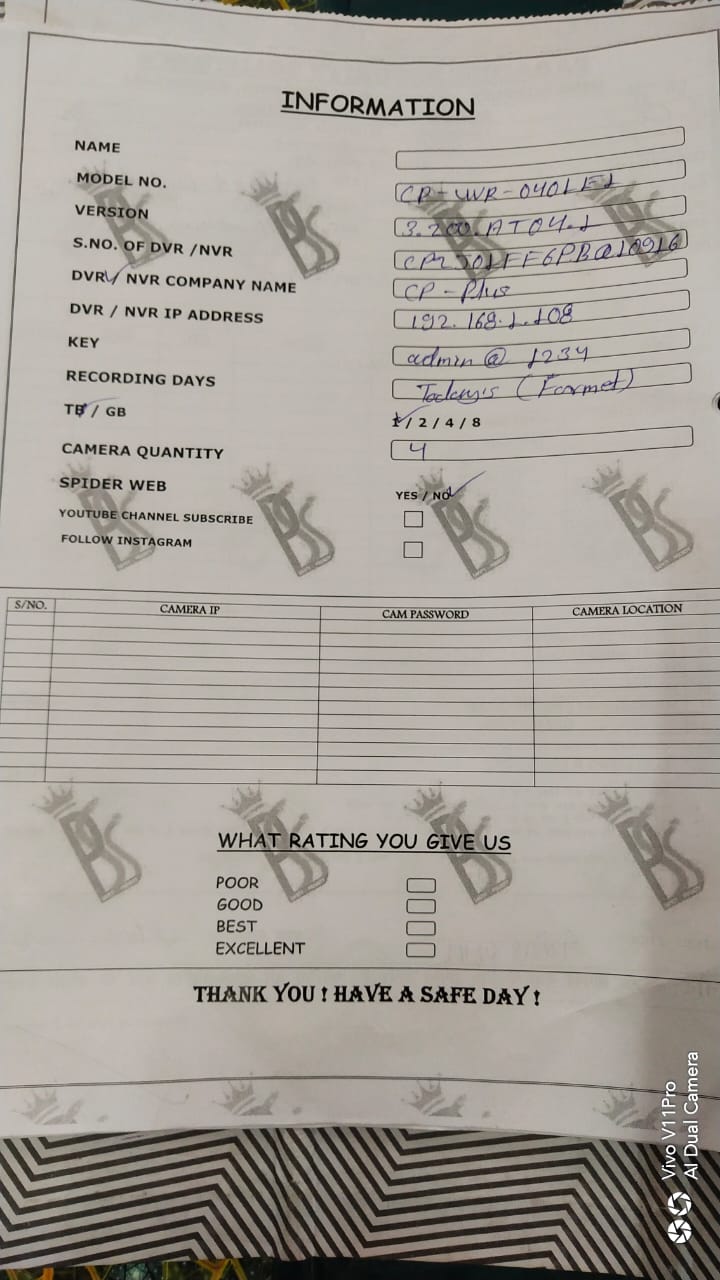 INFORMATION
NAME
MODEL NO. CP-UVR-0401E1
VERSION 3.200.AT04.1
S.NO. OF DVR /NVR
DVR / NVR COMPANY NAME CP-Plus
DVR / NVR IP ADDRESS 192.168.1.108
KEY admin@1234
RECORDING DAYS Today's (Formet)
TB / GB 1 / 2 / 4 / 8
CAMERA QUANTITY 4
SPIDER WEB YES / NO
YOUTUBE CHANNEL SUBSCRIBE
FOLLOW INSTAGRAM
S/NO. CAMERA IP CAM PASSWORD CAMERA LOCATION
WHAT RATING YOU GIVE US
POOR
GOOD
BEST
EXCELLENT
THANK YOU ! HAVE A SAFE DAY !
Vivo V11Pro
AI Dual Camera